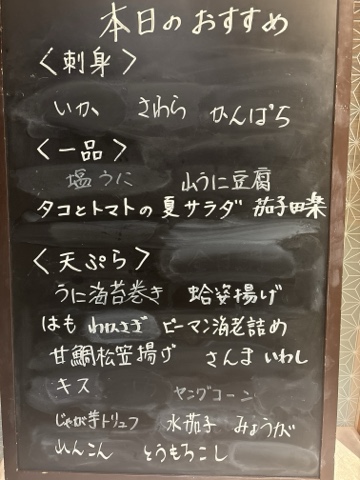 本日のおすすめ
＜刺身＞
いか さわら かんぱち
＜一品＞
塩うに 山うに豆腐
タコとトマトの夏サラダ 茄子田楽
＜天ぷら＞
うに海苔巻き 蛤姿揚げ
はも ピーマン海老詰め
甘鯛松笠揚げ さんま いわし
キス ヤングコーン
じゃが芋トリュフ 水茄子 みょうが
れんこん とうもろこし